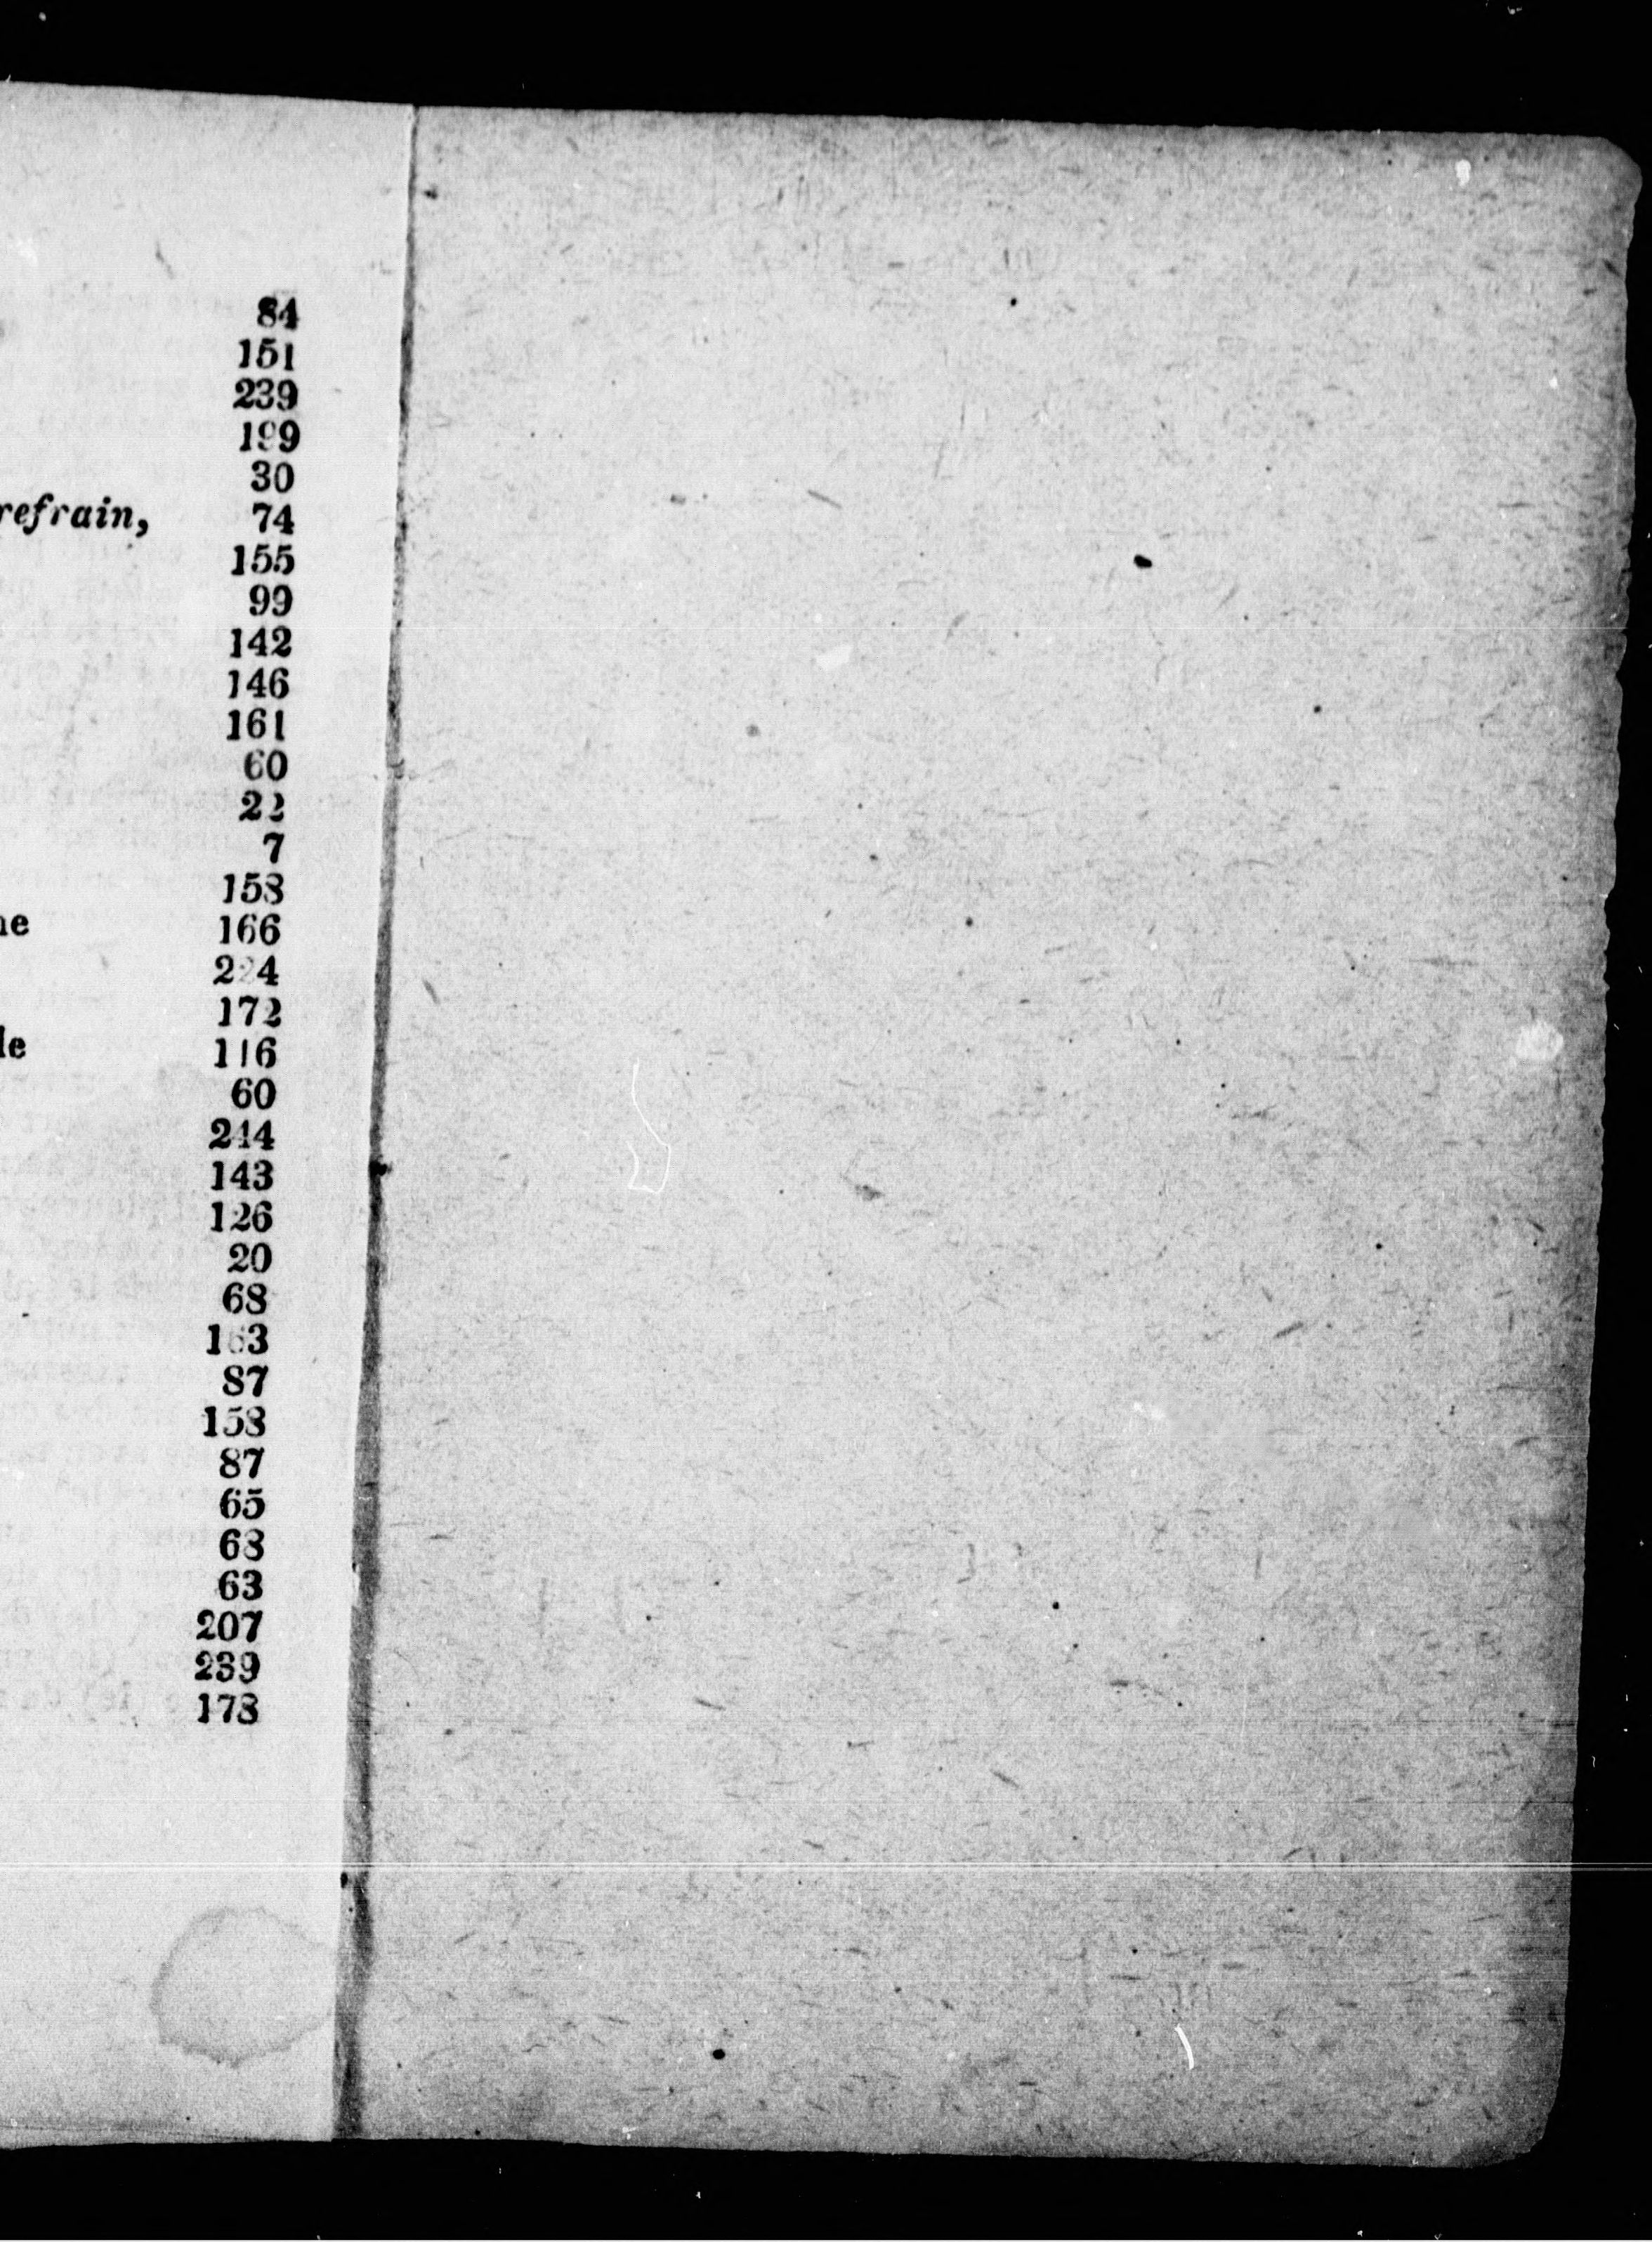 84
151
239
199
30
refrain, 74
155
99
142
146
161
60
22
7
158
166
224
172
116
60
244
143
126
20
68
163
87
158
87
65
68
63
207
239
178